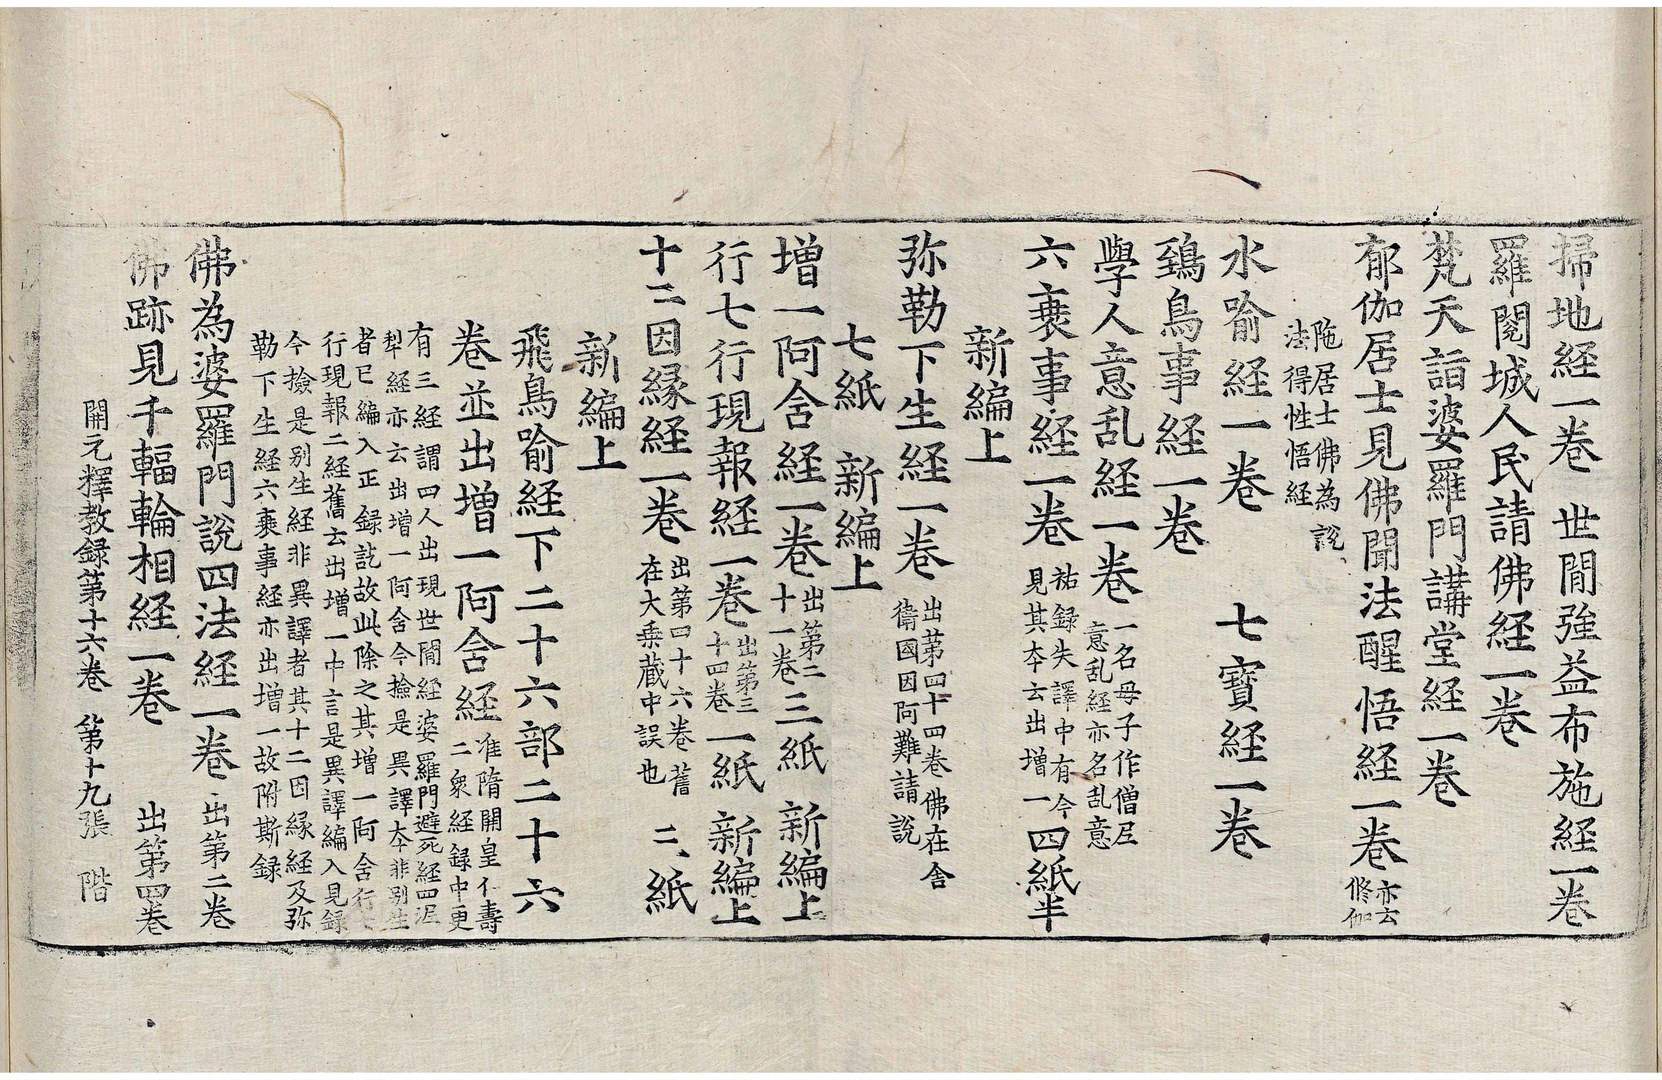 掃地経一巻 世間強益布施経一巻
羅閱城人民請佛経一巻
梵天詣婆羅門講堂経一巻
郁伽居士見佛聞法醒悟経一巻亦云修伽
陁居士佛為說
法得性悟経
水喻経一巻 七寶経一巻
鵄鳥事経一巻
學人意乱経一巻一名母子作僧尼意乱経亦名乱意
六衰事経一巻祐録失譯中有今見其本云出增一四紙半
新編上
弥勒下生経一巻出第四十四巻佛在舍衛國因阿難請說
七紙 新編上
增一阿含経一巻出第二十一巻三紙 新編上
行七行現報経一巻出第三十四巻一紙 新編上
十二因緣経一巻出第四十六巻舊在大乗蔵中誤也 二紙
新編上
飛鳥喻経下二十六部二十六
巻並出增一阿含経准隋開皇仁壽二衆経録中更
有三経謂四人出現世間経婆羅門避死経四泥
犁経亦云出增一阿含今撿是異譯本非別生
者已編入正録訖故此除之其增一阿含行七
行現報二経舊云出增一中言是異譯編入見録
今撿是別生経非異譯者其十二因緣経及弥
勒下生経六衰事経亦出增一故附斯録
佛為婆羅門說四法経一巻 出第二巻
佛跡見千輻輪相経一巻 出第四巻
開元釋教録第十六巻 第十九張 階